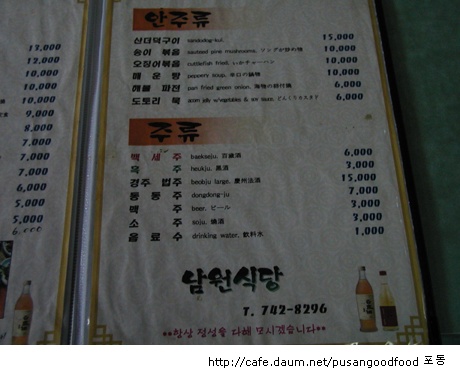 13,000
12,000
10,000
10,000
10,000
9,000
8,000
7,000
7,000
6,000
5,000
5,000
6,000
안주류
산더덕구이 sandodog-kui. 15,000
송이 볶음 sauteed pine mushrooms, 10,000
오징어볶음 cuttlefish fried, いかチャーハン 10,000
매운탕 peppery soup, 辛口の鍋物 10,000
해물 파전 pan fried green onion, 6,000
도토리 묵 6,000
주류
백세주 baekseju, 百歲酒 6,000
흑주 heukju, 黑酒 3,000
경주 법주 beobju large, 慶州法酒 15,000
동동주 dongdong-ju 7,000
맥주 beer, ビール 3,000
소주 soju, 燒酒 3,000
음료수 drinking water, 飮料水 1,000
남원식당
T. 742-8296
**항상 정성을 다해 모시겠습니다**
http://cafe.daum.net/pusangoodfood 포통